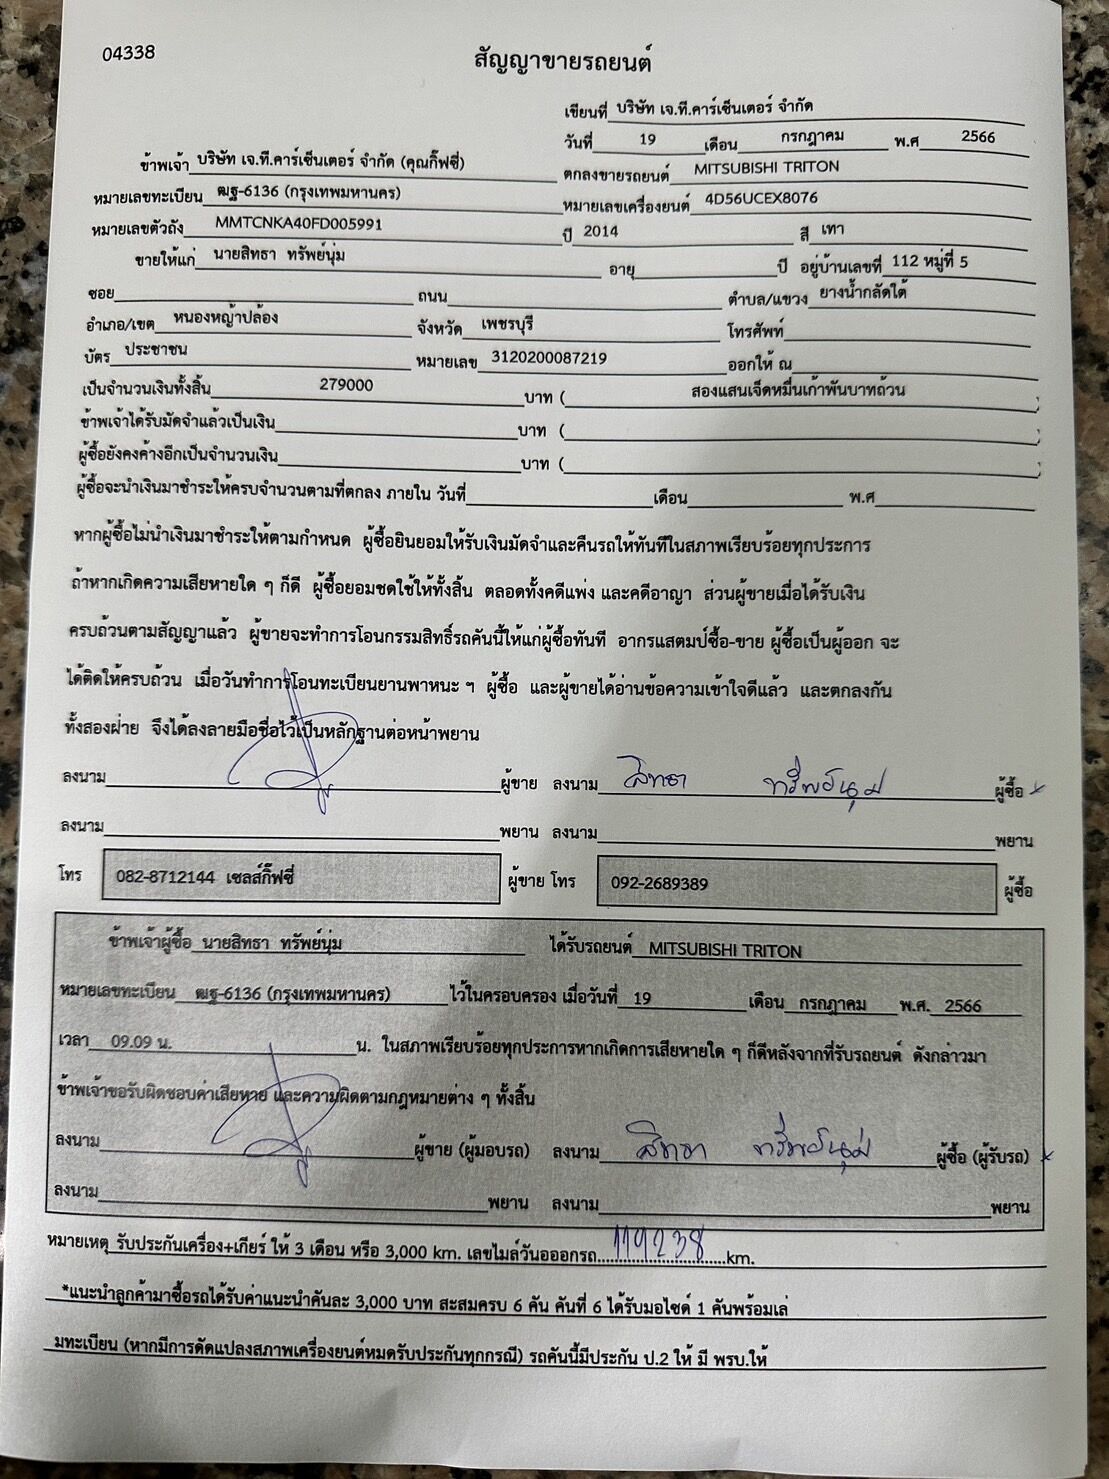 04338
สัญญาขายรถยนต์
เขียนที่ บริษัท เจ.ที.คาร์เซ็นเตอร์ จำกัด
วันที่ 19 เดือน กรกฎาคม พ.ศ 2566
ข้าพเจ้า บริษัท เจ.ที.คาร์เซ็นเตอร์ จำกัด (คุณกิ๊ฟซี่) ตกลงขายรถยนต์ MITSUBISHI TRITON
หมายเลขทะเบียน ฒฐ-6136 (กรุงเทพมหานคร) หมายเลขเครื่องยนต์ 4D56UCEX8076
หมายเลขตัวถัง MMTCNKA40FD005991 ปี 2014 สี เทา
ขายให้แก่ นายสิทธา ทรัพย์นุ่ม อายุ ปี อยู่บ้านเลขที่ 112 หมู่ที่ 5
ซอย ถนน ตำบล/แขวง ยางน้ำกลัดใต้
อำเภอ/เขต หนองหญ้าปล้อง จังหวัด เพชรบุรี โทรศัพท์
บัตร ประชาชน หมายเลข 3120200087219 ออกให้ ณ
เป็นจำนวนเงินทั้งสิ้น 279000 บาท ( สองแสนเจ็ดหมื่นเก้าพันบาทถ้วน )
ข้าพเจ้าได้รับมัดจำแล้วเป็นเงิน บาท ( )
ผู้ซื้อยังคงค้างอีกเป็นจำนวนเงิน บาท ( )
ผู้ซื้อจะนำเงินมาชำระให้ครบจำนวนตามที่ตกลง ภายใน วันที่ เดือน พ.ศ
หากผู้ซื้อไม่นำเงินมาชำระให้ตามกำหนด ผู้ซื้อยินยอมให้รับเงินมัดจำและคืนรถให้ทันทีในสภาพเรียบร้อยทุกประการ
ถ้าหากเกิดความเสียหายใด ๆ ก็ดี ผู้ซื้อยอมชดใช้ให้ทั้งสิ้น ตลอดทั้งคดีแพ่ง และคดีอาญา ส่วนผู้ขายเมื่อได้รับเงิน
ครบถ้วนตามสัญญาแล้ว ผู้ขายจะทำการโอนกรรมสิทธิ์รถคันนี้ให้แก่ผู้ซื้อทันที อากรแสตมป์ซื้อ-ขาย ผู้ซื้อเป็นผู้ออก จะ
ได้ติดให้ครบถ้วน เมื่อวันทำการโอนทะเบียนยานพาหนะ ฯ ผู้ซื้อ และผู้ขายได้อ่านข้อความเข้าใจดีแล้ว และตกลงกัน
ทั้งสองฝ่าย จึงได้ลงลายมือชื่อไว้เป็นหลักฐานต่อหน้าพยาน
ลงนาม ผู้ขาย ลงนาม สิทธา ทรัพย์นุ่ม ผู้ซื้อ
ลงนาม พยาน ลงนาม พยาน
โทร 082-8712144 เซลส์กิ๊ฟซี่ ผู้ขาย โทร 092-2689389 ผู้ซื้อ
ข้าพเจ้าผู้ซื้อ นายสิทธา ทรัพย์นุ่ม ได้รับรถยนต์ MITSUBISHI TRITON
หมายเลขทะเบียน ฒฐ-6136 (กรุงเทพมหานคร) ไว้ในครอบครอง เมื่อวันที่ 19 เดือน กรกฎาคม พ.ศ. 2566
เวลา 09.09 น. น. ในสภาพเรียบร้อยทุกประการหากเกิดการเสียหายใด ๆ ก็ดีหลังจากที่รับรถยนต์ ดังกล่าวมา
ข้าพเจ้าขอรับผิดชอบค่าเสียหาย และความผิดตามกฎหมายต่าง ๆ ทั้งสิ้น
ลงนาม ผู้ขาย (ผู้มอบรถ) ลงนาม สิทธา ทรัพย์นุ่ม ผู้ซื้อ (ผู้รับรถ)
ลงนาม พยาน ลงนาม พยาน
หมายเหตุ รับประกันเครื่อง+เกียร์ ให้ 3 เดือน หรือ 3,000 km. เลขไมล์วันอออกรถ 119238 km.
*แนะนำลูกค้ามาซื้อรถได้รับค่าแนะนำคันละ 3,000 บาท สะสมครบ 6 คัน คันที่ 6 ได้รับมอไซด์ 1 คันพร้อมเล่
มทะเบียน (หากมีการดัดแปลงสภาพเครื่องยนต์หมดรับประกันทุกกรณี) รถคันนี้มีประกัน ป.2 ให้ มี พรบ.ให้